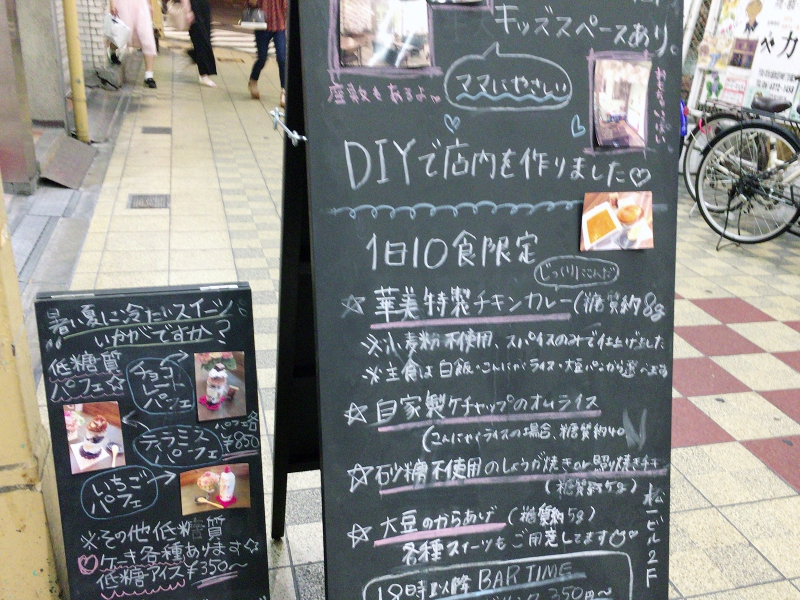 キッズスペースあり。
ママにやさしい
座敷もあるよ
DIYで店内を作りました♡
1日10食限定
じっくりにこんだ
☆華美特製チキンカレー(糖質約8g
※小麦粉不使用、スパイスのみで仕上げました
※主食は白飯・こんにゃくライス・大豆パンから選べます
☆自家製ケチャップのオムライス
(こんにゃくライスの場合、糖質約40
☆砂糖不使用のしょうが焼きor照り焼きチキ
(糖質約5g)
☆大豆のからあげ(糖質約5g)
各種スイーツもご用意してます
松一ビル2F
18時以降 BAR TIME
350円〜
暑い夏に冷たいスイーツ
いかがですか?
低糖質
パフェ☆
チョコ
レート
パフェ
パフェ各
¥850
ティラミス
パフェ
いちご
パフェ
※その他低糖質
♡ケーキ各種あります☆
低糖アイス¥350〜